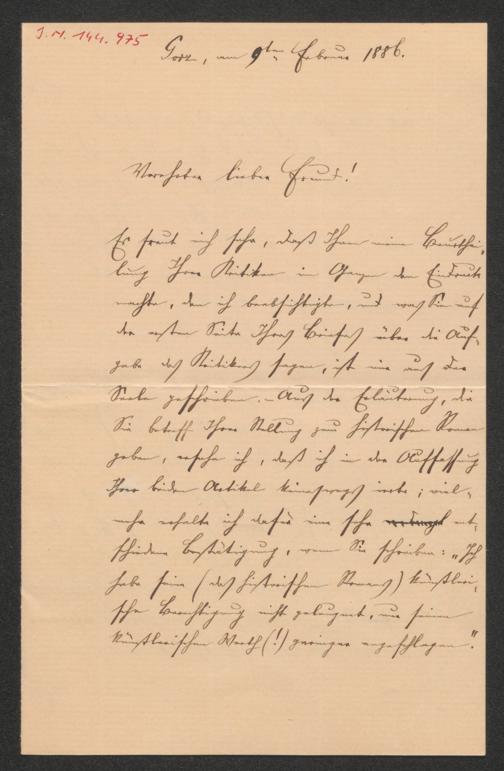 J.N. 144.975
Görz, am 9ten Februar 1886.
Verehrter lieber Freund!
Es freut mich sehr, daß Ihnen meine Beurthei-
lung Ihrer Kritiken im Ganzen den Eindruck
machte, den ich beabsichtigte, und was Sie auf
der ersten Seite Ihres Briefes über die Auf-
gabe des Kritikers sagen, ist mir aus der
Seele geschrieben. – Aus der Erläuterung, die
Sie betreff Ihrer Stellung zum historischen Roman
geben, ersehe ich, daß ich in der Auffassung
Ihrer beiden Artikel keineswegs irrte; viel-
mehr erhalte ich dafür eine sehr ent-
schiedene Bestätigung, wenn Sie schreiben: „Ich
habe seine (des historischen Romans) künstleri-
sche Berechtigung nicht geleugnet, nur seinen
künstlerischen Werth (!) geringer angeschlagen."